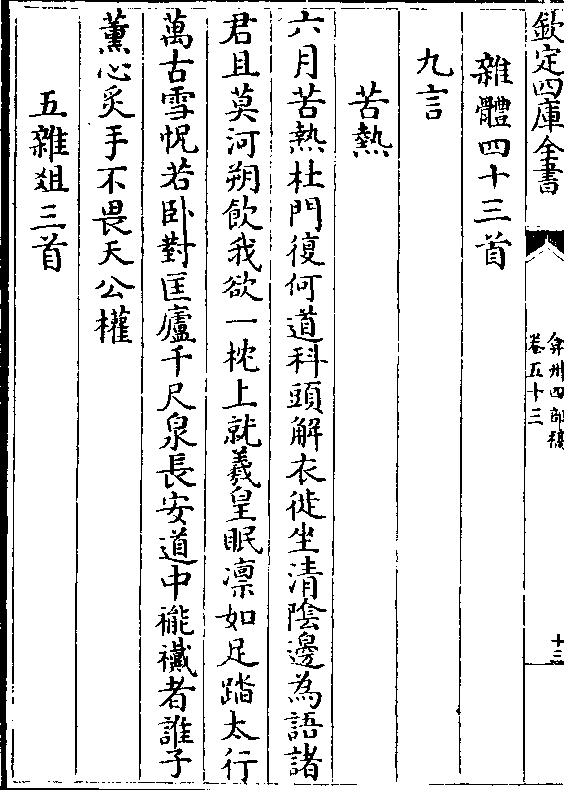 欽定四庫全書
弇州四部稿
卷五十三
十三
雜體四十三首
九言
苦熱
六月苦熱杜門復何道科頭解衣徙坐清陰邊為語諸
君且莫河朔飲我欲一枕上就羲皇眠凛如足踏太行
萬古雪怳若卧對匡廬千尺泉長安道中襱襶者誰子
薰心炙手不畏天公權
五雜俎三首